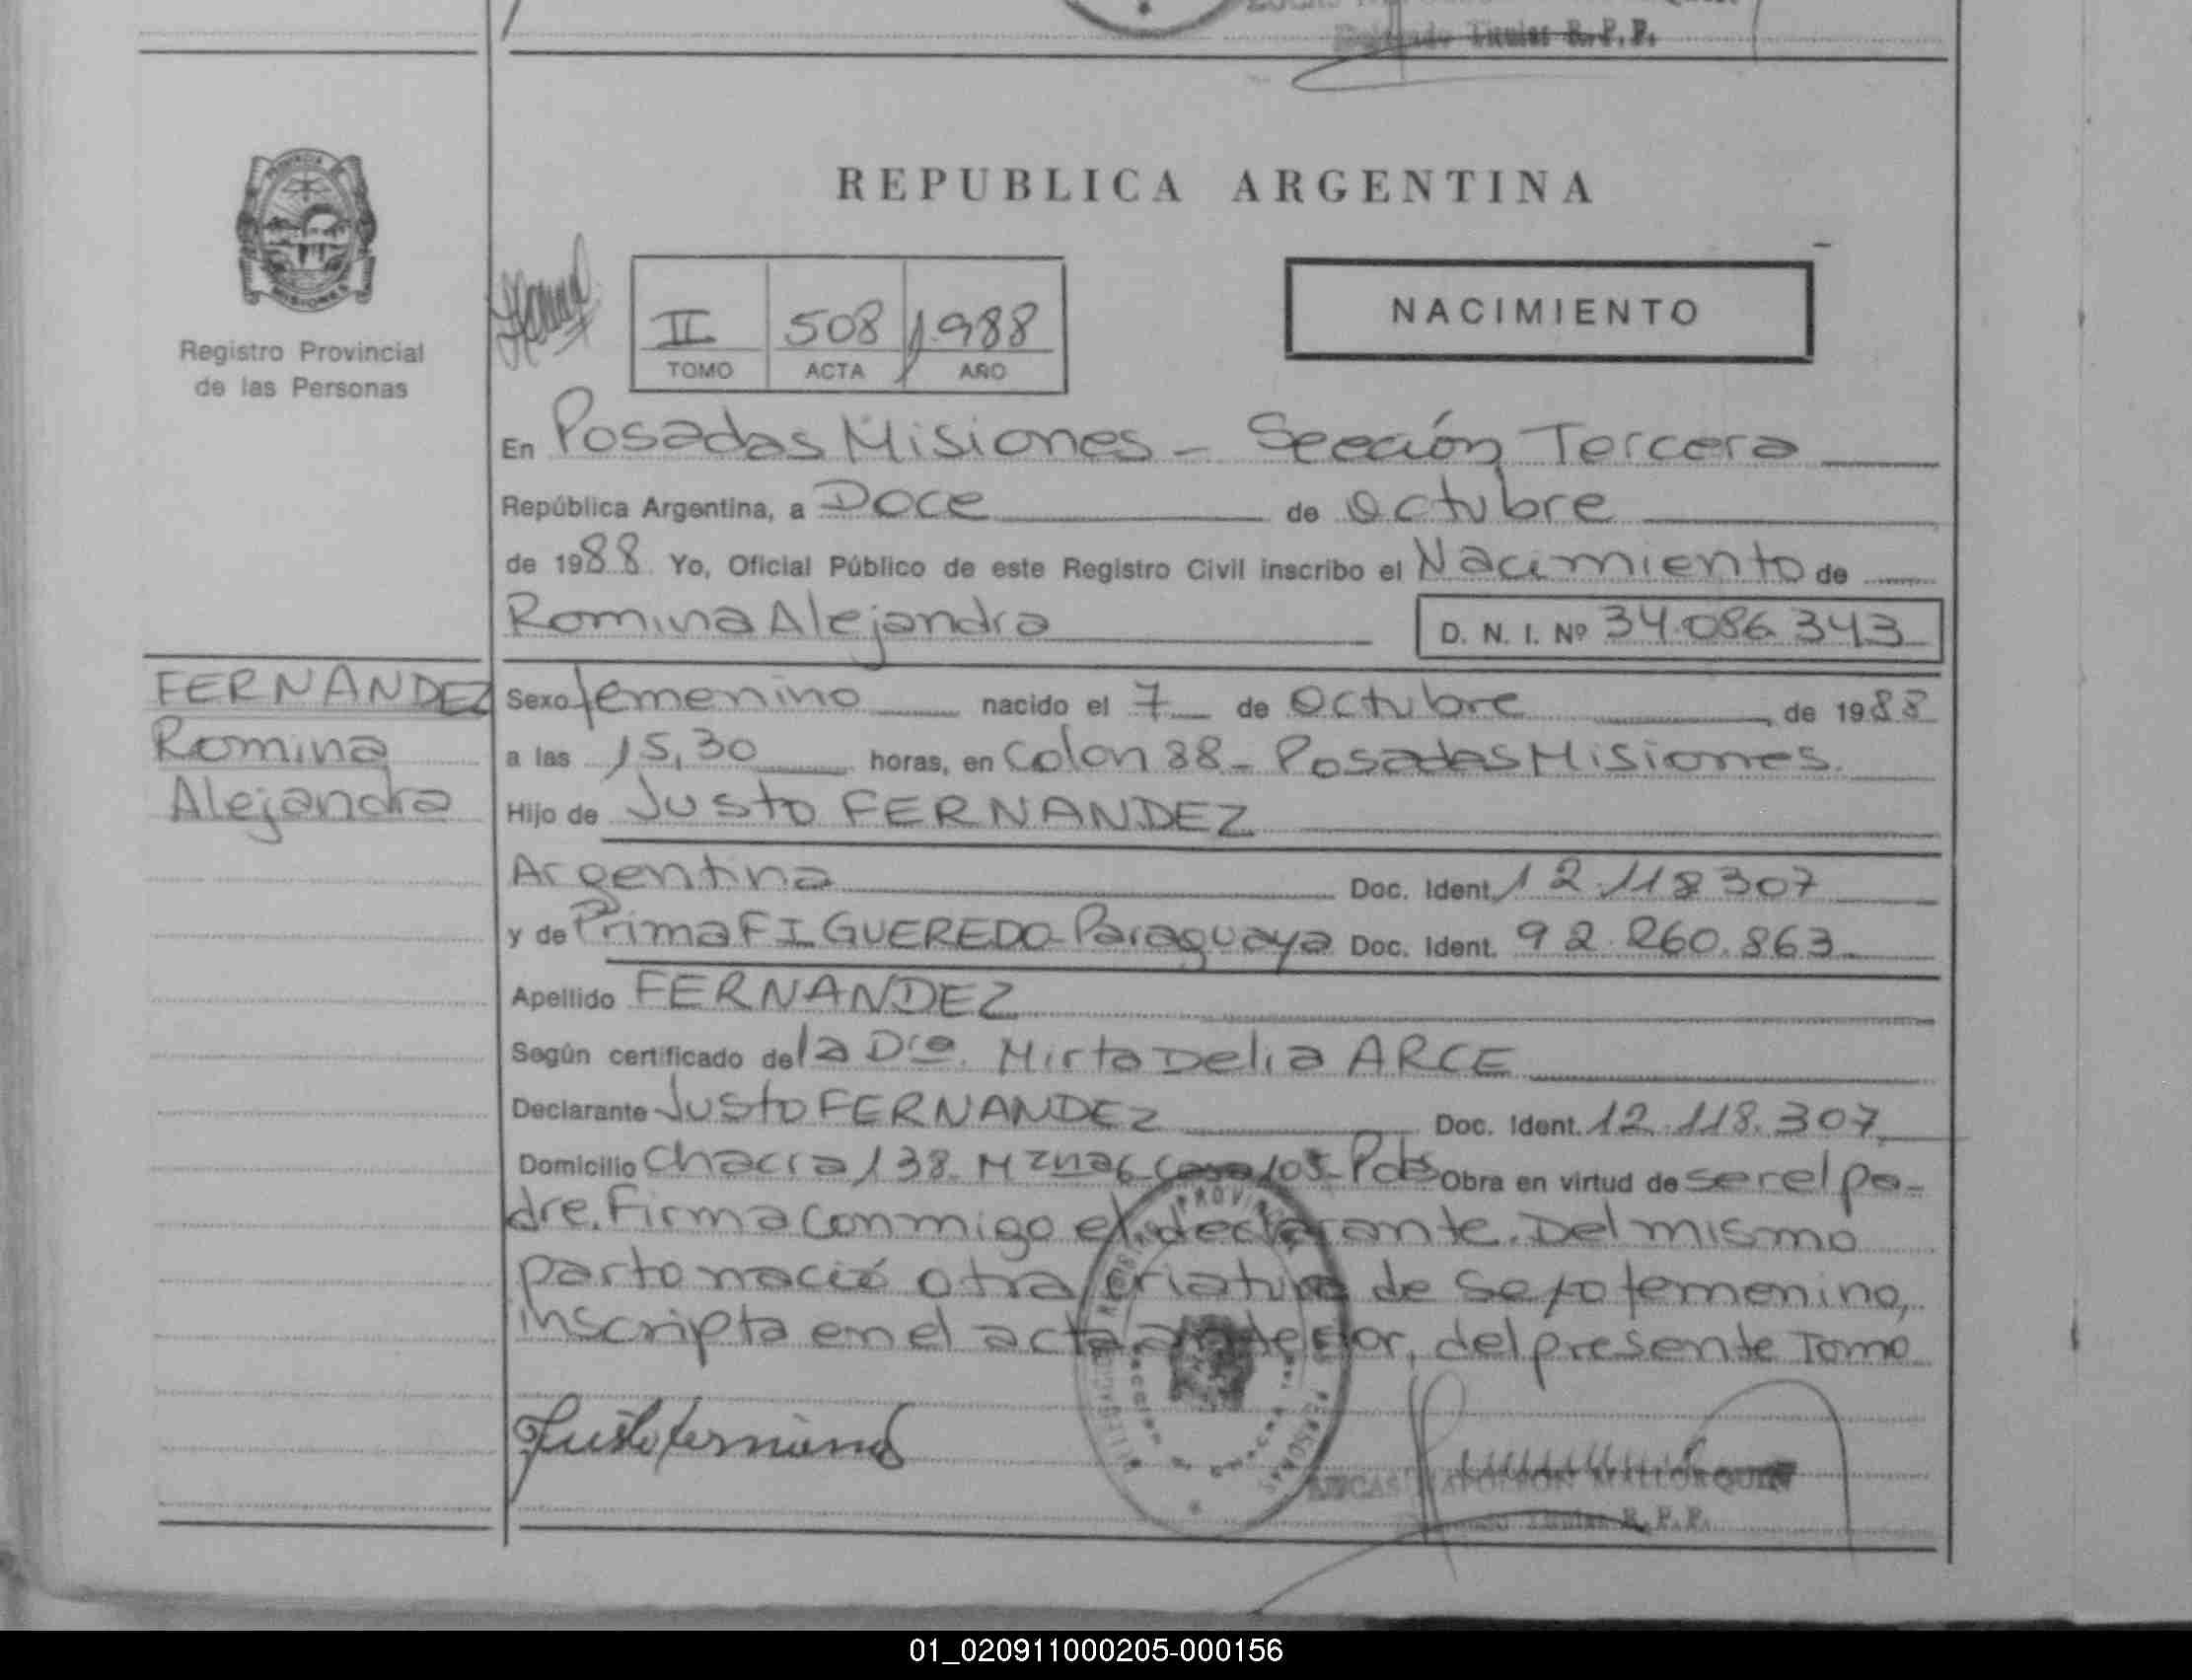 Titular R.P.P.
PROVINCIA
MISIONES
Registro Provincial
de las Personas
REPUBLICA ARGENTINA
II 508 1.988
TOMO ACTA AÑO
NACIMIENTO
En Posadas Misiones - Sección Tercera
República Argentina, a Doce de Octubre
de 1988 Yo, Oficial Público de este Registro Civil inscribo el Nacimiento de
Romina Alejandra D. N. I. Nº 34.086.343
FERNANDEZ
Romina
Alejandra
Sexo femenino nacido el 7 de Octubre de 1988
a las 15,30 horas, en Colon 88 - Posadas Misiones.
Hijo de Justo FERNANDEZ
Argentina Doc. Ident. 12.118.307
y de Prima FIGUEREDO - Paraguaya Doc. Ident. 92.260.863
Apellido FERNANDEZ
Según certificado de la Dra. Mirta Delia ARCE
Declarante Justo FERNANDEZ Doc. Ident. 12.118.307
Domicilio Chacra 138. Mzna 6 Casa 105 - Pdas Obra en virtud de ser el pa-
dre. Firma conmigo el declarante. Del mismo
parto nació otra criatura de sexo femenino,
inscripta en el acta anterior, del presente Tomo
Justo fernandez
LUCAS NAPOLEON MALLORQUIN
Titular R.P.P.
01_020911000205-000156